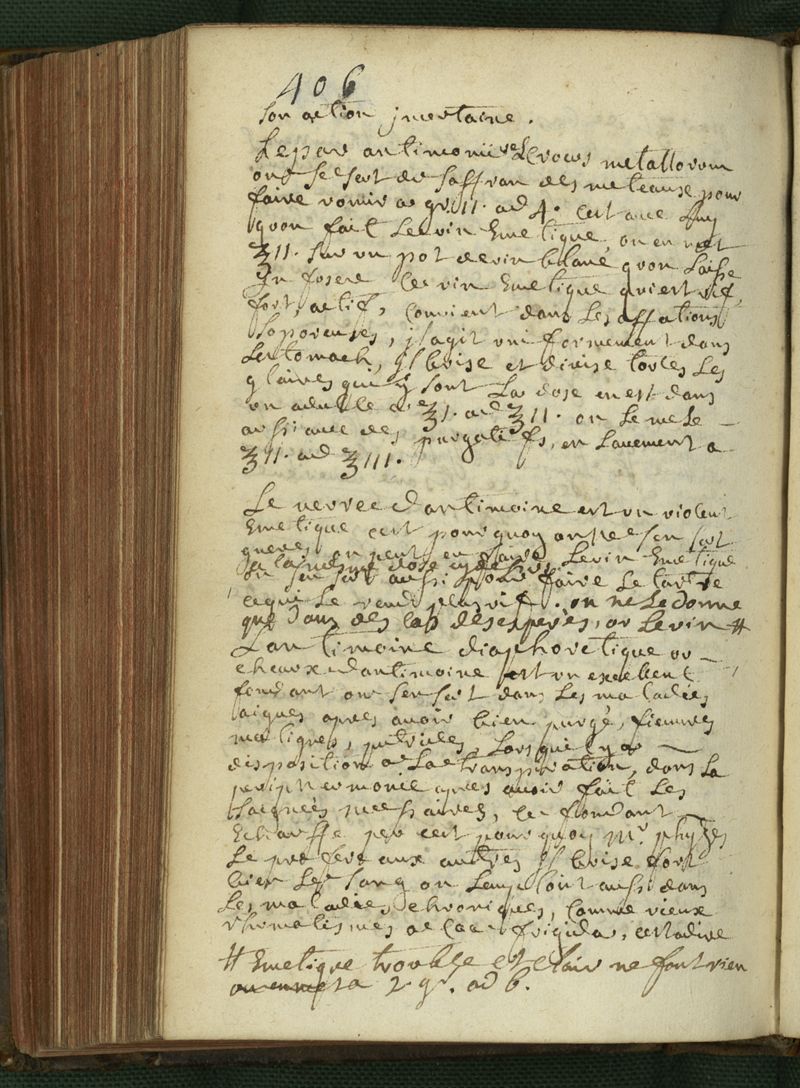 406
Son action jncertaine.
Lepar antimonii et Le crocus metallorum
on se sert du saffran des meteaux pour
faire vomir a gr. 11. ad 4. c'est avec luy
qvon fait Le vin Emetique, on en met
ʒ11. sur vn pot de vin blanc qvon Laisse
Jnfuser Ce vin Emetique qvi est vif,
fort, actif, Convient dans Les affections
Soporeuses, jl agit vniformement dans
Lestomach, Jl brise et divise toutes Les
glaires qui y sont La dose en est dans
vn adulte de ʒ1. ad ʒ11. on Le mele
aussi avec des purgatifs, en Lavement a
ʒ11. ad ʒ111.
Le verre d'antimoine est vn violent
Emetique c'est pourquoy on ne s'en sert
gueres, on peut en faire Le vin Emetique
a la mesme dose
on s'en sert aussi pour faire Le tartre
ce qui Le rend plus vif. on ne Le donne
que dans des cas desesperés, ou Le vin #
L'antimoine diaphoretique ou
cheaux d'antimoine est vn excellent
fondant on s'en sert dans Les maladies
aigues apres avoir bien purgé, fievres
malignes, putrides, Lors qu'il y a
disposition a La transpiration, dans La
peripneumonie apres avoir fait Les
Saignées necessaires, Ce fondant
Echauffe peu c'est pourquoy Mr.
Le prefere aux autres Jl brise fort
bien Le sang on L'employt aussi dans
Les maladies chroniques, Comme vieux
rhumatismes frigida, c'est a dire
# Emetique trouble et clair ne font rien
a 2 gr. ad 6.